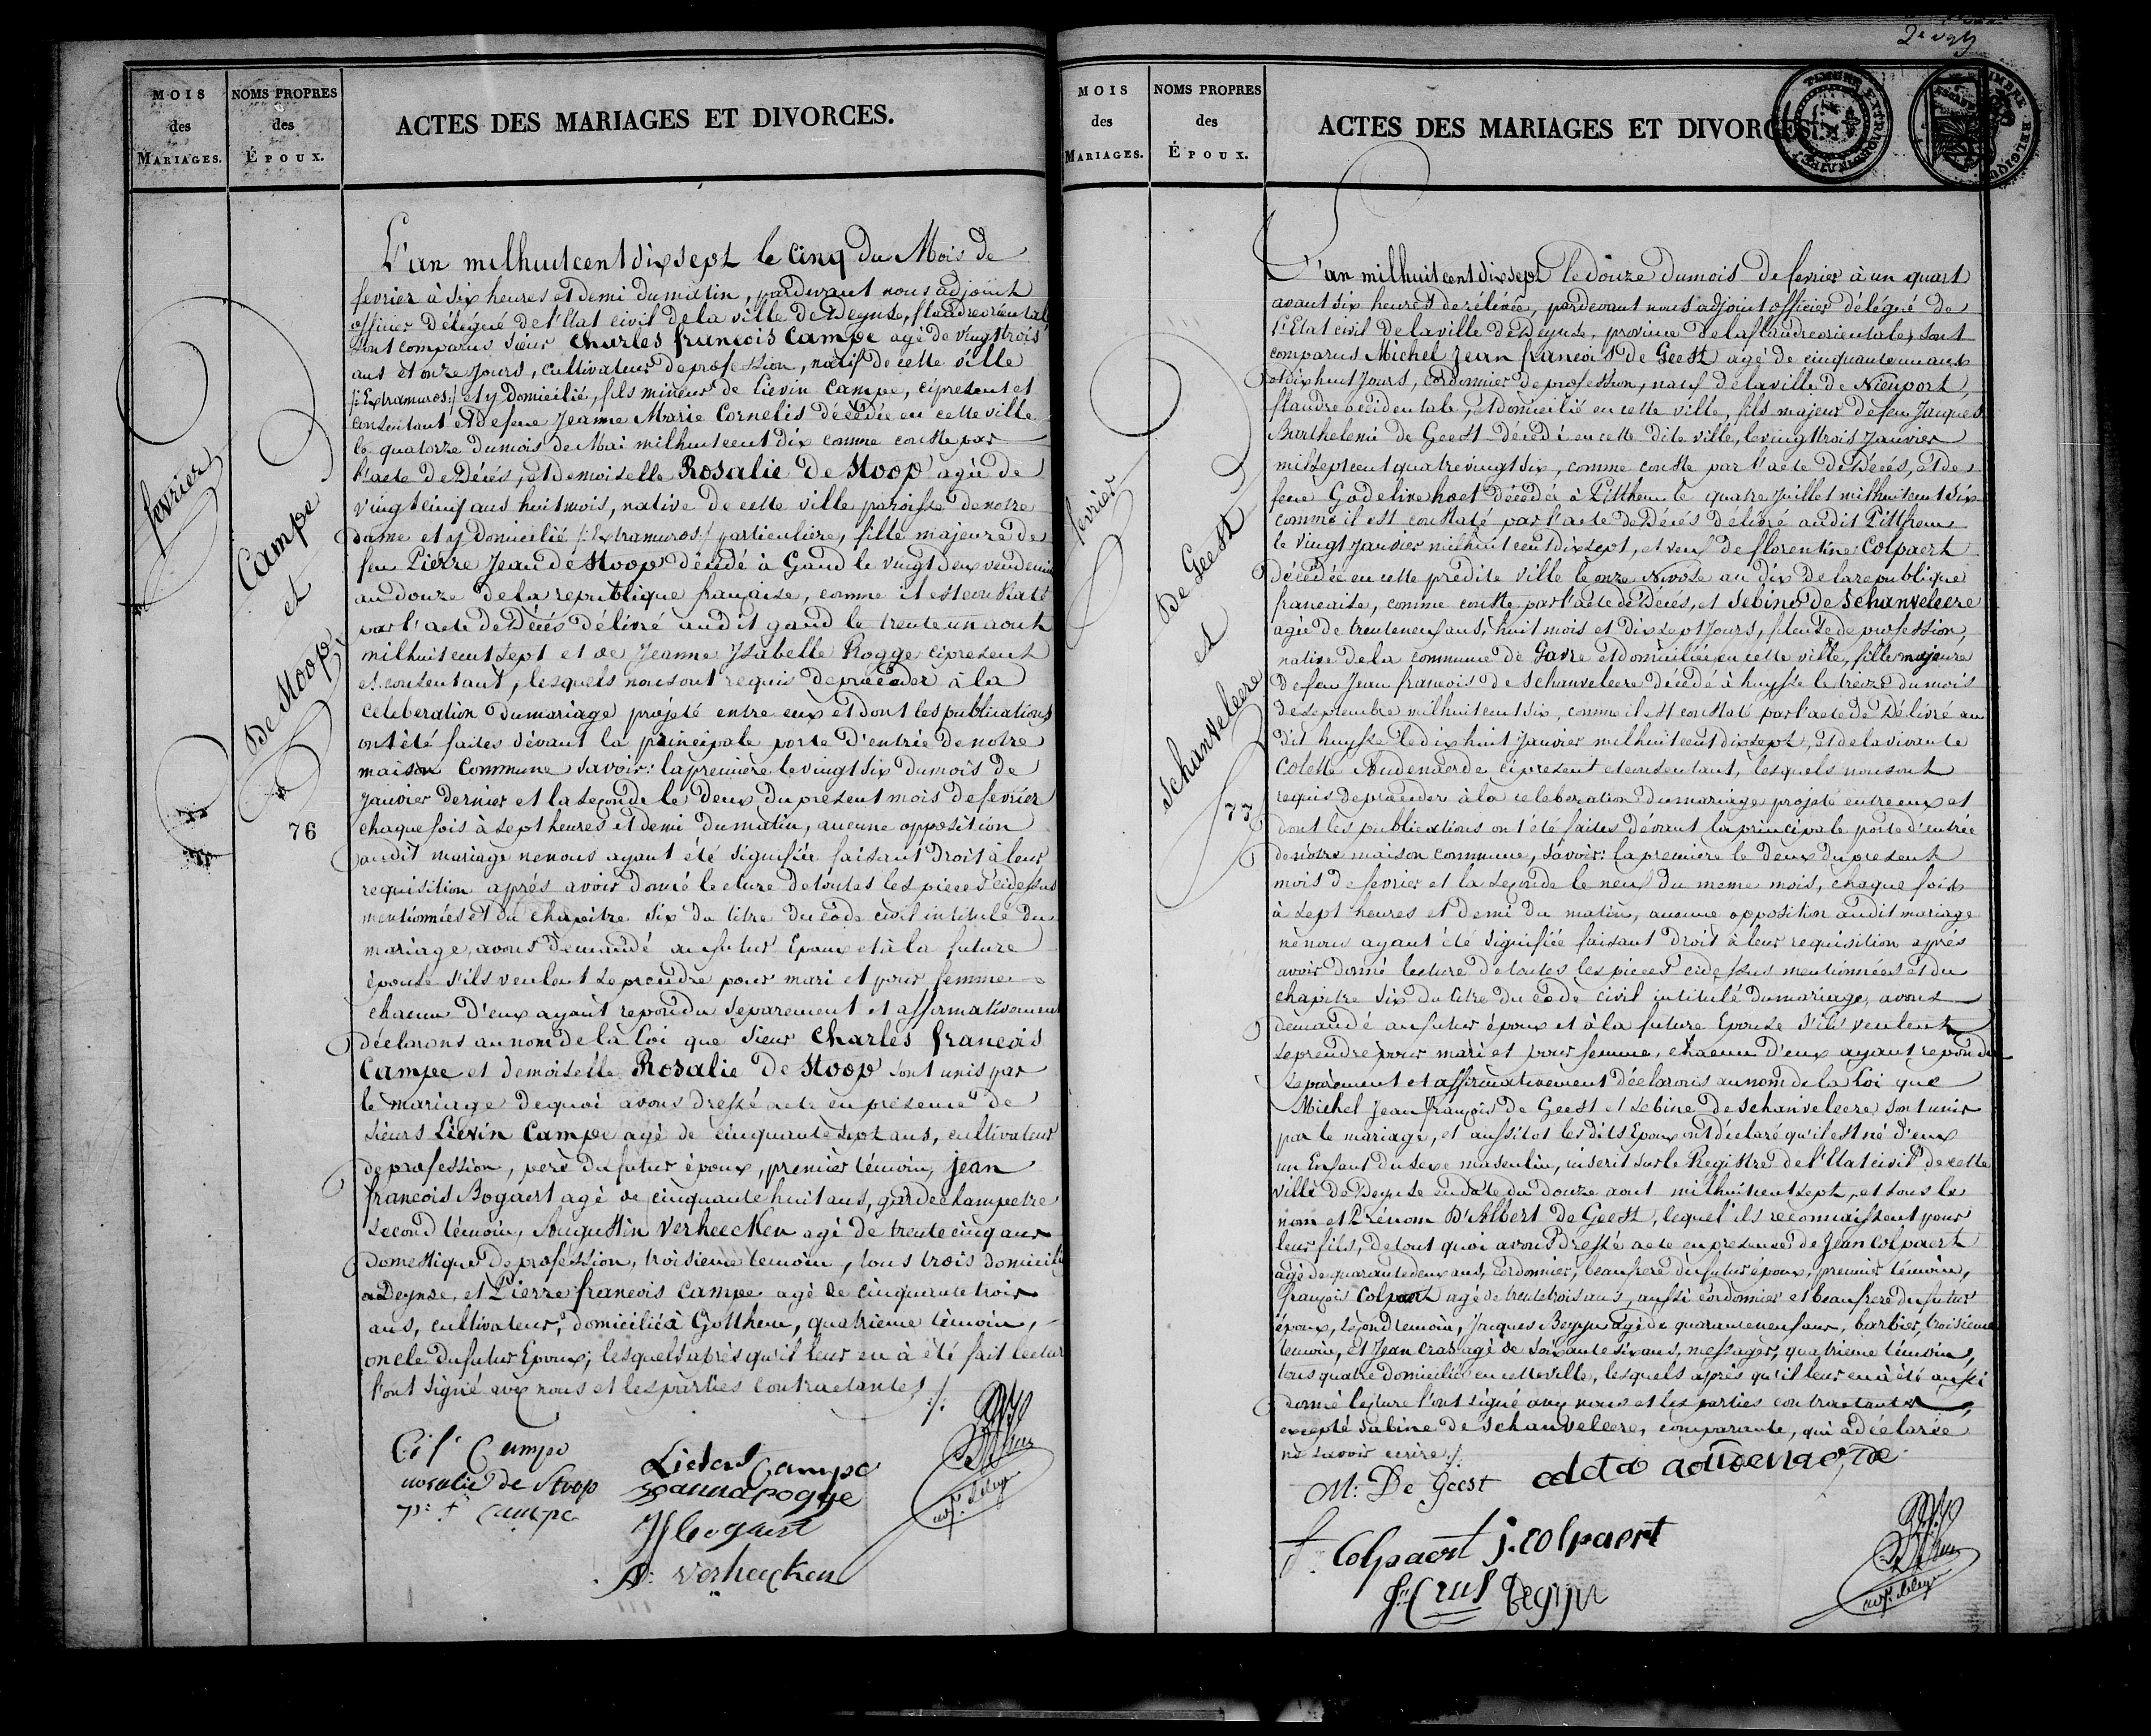 MOIS
des
MARIAGES.
NOMS PROPRES
des
ÉPOUX.
ACTES DES MARIAGES ET DIVORCES.
fevrier
Campe
et
De Stoop
76
L'an milhuitcentdixsept le Cinq du Mois de
fevrier à six heures et demi du matin, pardevant nous adjoint
officier délégué de l'Etat civil de la ville de Deynse, flandre orientale
sont comparus sieur Charles francois Campe agé de vingttrois
ans et onze jours, cultivateur de profession, natif de cette ville
/:Extramuros:/ et y domicilié, fils mineur de Lievin Campe, cipresent et
consentant et de feue Jeanne Marie Cornelis décédée en cette ville
le quatorze du mois de Mai milhuitcent dix comme conste par
l'acte de Décés, et demoiselle Rosalie de Stoop agée de
vingtcinq ans huit mois, native de cette ville paroisse de notre
dame et y domicilié /:Extramuros:/ particuliere, fille majeure de
feu Pierre Jean de Stoop décédé à Gand le vingtdeux vendemi
an douze de la republique française, comme il est constaté
par l'acte de Décés délivré audit gand le trente un aout
milhuitcent sept et de Jeanne Ysabelle Rogge cipresent
et consentant, lesquels nous ont requis de proceder à la
celeberation du mariage projeté entre eux et dont les publications
ont été faites dévant la principale porte d'entrée de notre
maison Commune savoir: la premiere le vingt six du mois de
Janvier dernier et la seconde le Deux du présent mois de fevrier
chaque fois à sept heures et demi du matin, aucune opposition
audit mariage ne nous ayant été signifiée faisant droit à leur
requisition aprés avoir donné lecture de toutes les pieces cidessus
mentionnées et du chapitre six du titre du code civil intitulé du
mariage, avons demandé au futur Epoux et à la future
épouse s'ils veulent se prendre pour mari et pour femme
chacun d'eux ayant repondu separement et affirmativement
déclarons au nom de la Loi que Sieur Charles francois
Campe et demoiselle Rosalie De Stoop sont unis par
le mariage de quoi avons dressé acte en présence de
Sieurs Lievin Campe agé de cinquante sept ans, cultivateur
de profession, pere du futur époux, premier témoin, jean
francois Bogaert agé de cinquante huit ans, gardechampetre
second témoin, Augustin Verheecken agé de trente cinq ans
domestique de profession, troisieme temoin, tous trois domicilié
a Deynse, et Pierre francois Campe agé de cinquante trois
ans, cultivateur, domicilié à Gotthem, quatrieme témoin,
oncle du futur Epoux; lesquels aprés qu'il leur en à été fait lectur
l'ont signé avec nous et les parties contractantes ./.
C: f: Campe
rosalie de Stoop
p: f: Campe
Lieven Campe
Joanna rogge
Jf bogaert
A: Verheecken
adj. délégué
MOIS
des
MARIAGES.
NOMS PROPRES
des
ÉPOUX.
ACTES DES MARIAGES ET DIVORCES.
TIMBRE EXTRAORDINAIRE
TIMBRE BELGIQUE
ESCAUT
fevrier
De Geest
et
Schanveleere
77
L'an milhuitcentdixsept le douze du mois de fevrier à un quart
avant six heures de rélévée, pardevant nous adjoint officier délégué de
l'Etat civil de la ville de Deynse, province de la flandre orientale, sont
comparus Michel Jean francois de Geest agé de cinquante un ans
et dixhuit Jours, cordonnier de profession, natif de la ville de Nieuport,
flandre occidentale, et domicilié en cette ville, fils majeur de feu Jacques
Barthelemi de Geest décédé en cette dite ville, le vingttrois Janvier
milseptcentquatrevingtsix, comme conste par l'acte de Décés, et de
feue Godelive hoet décédée à Pitthem le quatre Juillet milhuitcentdix
comme il est constaté par l'acte de Décés délivré audit Pitthem
le vingt Janvier milhuitcentdixsept, et veuf de florentine Colpaert
décédée en cette predite ville le onze Nivose an dix de la republique
francaise, comme conste par l'acte de Décés, et Sebine de Schanveleere
agée de trenteneuf ans, huit mois et dixsept Jours, fileuse de profession,
native de la commune de Gavre et domiciliée en cette ville, fille majeure
de feu Jean francois de Schanveleere décédé à huysse le treize du mois
de septembre milhuitcentsix, comme il est constaté par l'acte de délivré au
dit huysse le dixhuit Janvier milhuitcentdixsept, et de la vivante
Colette Audenaerde cipresent et consentant, lesquels nous ont
requis de proceder à la celeberation du mariage projeté entre eux et
dont les publications ont été faites dévant la principale porte d'entrée
de notre maison commune, savoir: la premiere le deux du present
mois de fevrier et la seconde le neuf du meme mois, chaque fois
à sept heures et demi du matin, aucune opposition audit mariage
ne nous ayant été signifiée faisant droit à leur requisition aprés
avoir donné lecture de toutes les pieces cidessus mentionnées et du
chapitre six du titre du code civil intitulé du mariage, avons
demandé au futur époux et à la future Epouse s'ils veulent
se prendre pour mari et pour femme, chacun d'eux ayant repondu
separement et affirmativement déclarons au nom de la Loi que
Michel Jean françois de Geest et Sebine de Schanveleere sont unis
par le mariage, et aussitot les dits Epoux ont déclaré qu'il est né d'eux
un Enfant du sexe masculin, inscrit sur le Registre de l'Etat civil de cette
ville de Deynse en date du douze aout milhuitcent sept, et sous le
nom et Prénom d'Albert De Geest, lequel ils reconnaissent pour
leur fils, de tout quoi avons dressé acte en presence de Jean Colpaert
agé de quarante deux ans, cordonnier, beaufrere du futur époux, premier témoin,
françois Colpaert agé de trente trois ans, aussi cordonnier et beaufrere du futur
époux, second temoin, Jacques Begyn agé de quaranteneuf ans, barbier, troisieme
temoin, et Jean Cras agé de soixante six ans, messager, quatrieme témoin,
tous quatre domicilié en cette ville, lesquels aprés qu'il leur en à été aussi
donné lecture l'ont signé avec nous et les parties contractantes
excepté Sabine de Schanveleere, comparante, qui à déclarée
ne savoir ecrire ./.
M: De Geest
f. Colpaert j. colpaert
Cras Begijn
adj. délégué